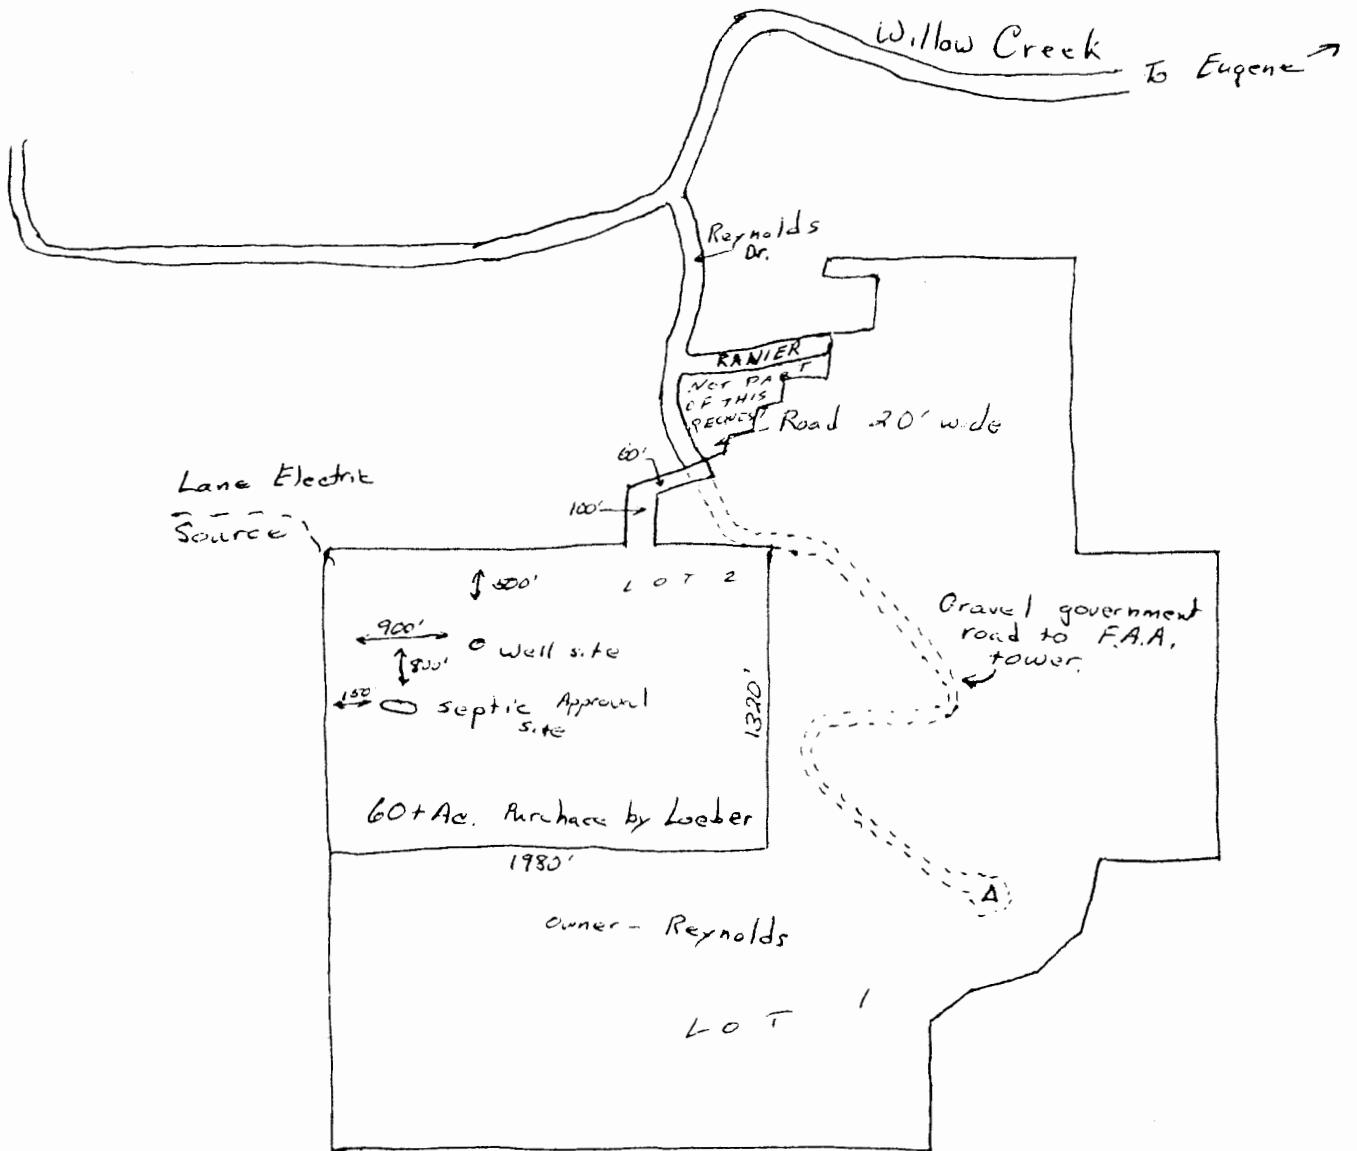 Willow Creek
To Eugene
Reynolds
Dr.
RANIER
NOT PART
OF THIS
REQUEST
Road 20' wide
60'
100'
Lane Electric
Source
LOT 2
500'
900'
well site
800'
150'
septic Approval
site
1320'
Gravel government
road to F.A.A.
tower.
60+Ac. Purchace by Loeber
1980'
Owner - Reynolds
LOT 1